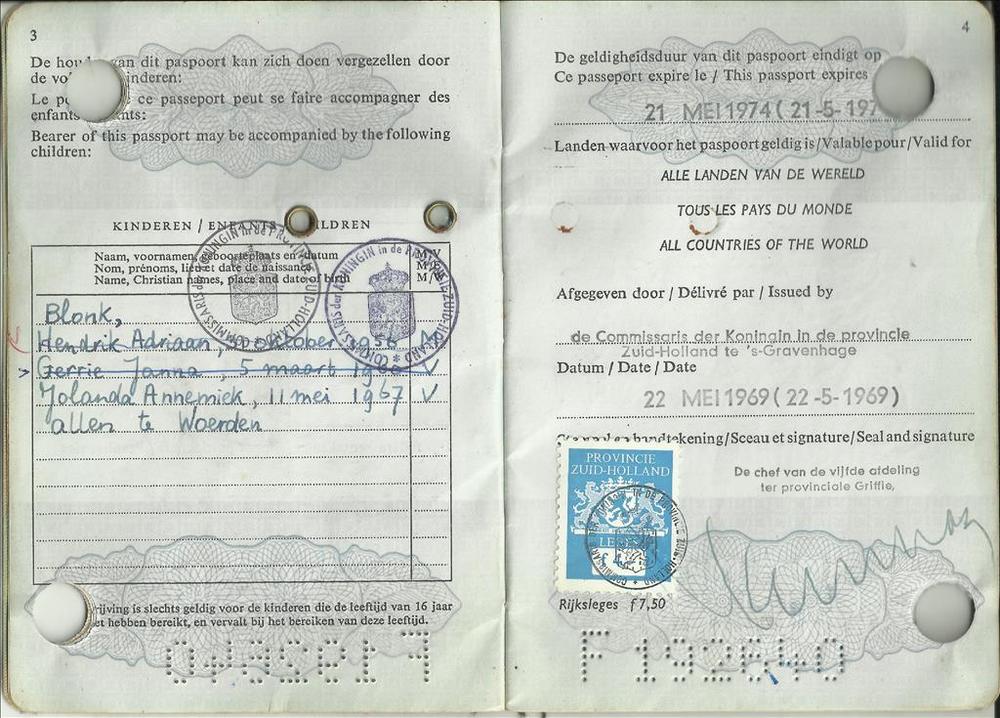 3
De hou van dit paspoort kan zich doen vergezellen door
de vol inderen:
Le po ce passeport peut se faire accompagner des
enfants nts:
Bearer of this passport may be accompanied by the following
children:
KINDEREN / ENFANTS / CHILDREN
Naam, voornamen, geboorteplaats en -datum
Nom, prénoms, lieu et date de naissance
Name, Christian names, place and date of birth
M/V
M/
M/
Blonk,
Hendrik Adriaan, oktober 1956 M
Gerrie Janna, 5 maart V
Jolanda Annemiek, 11 mei 1967 V
allen te Woerden
COMMISSARIS der KONINGIN in de PROVINCIE ZUID-HOLLAND
COMMISSARIS der KONINGIN in de PROVINCIE ZUID-HOLLAND
rijving is slechts geldig voor de kinderen die de leeftijd van 16 jaar
et hebben bereikt, en vervalt bij het bereiken van deze leeftijd.
4
De geldigheidsduur van dit paspoort eindigt op
Ce passeport expire le / This passport expires
21 MEI 1974 ( 21-5-197
Landen waarvoor het paspoort geldig is / Valable pour / Valid for
ALLE LANDEN VAN DE WERELD
TOUS LES PAYS DU MONDE
ALL COUNTRIES OF THE WORLD
Afgegeven door / Délivré par / Issued by
de Commissaris der Koningin in de provincie
Zuid-Holland te 's-Gravenhage
Datum / Date / Date
22 MEI 1969 ( 22-5-1969)
handtekening/Sceau et signature/Seal and signature
PROVINCIE
ZUID-HOLLAND
LEGES
De chef van de vijfde afdeling
ter provinciale Griffie,
COMMISSARIS DER KONINGIN IN DE PROVINCIE ZUID-HOLLAND
Rijksleges f 7,50
F 192840